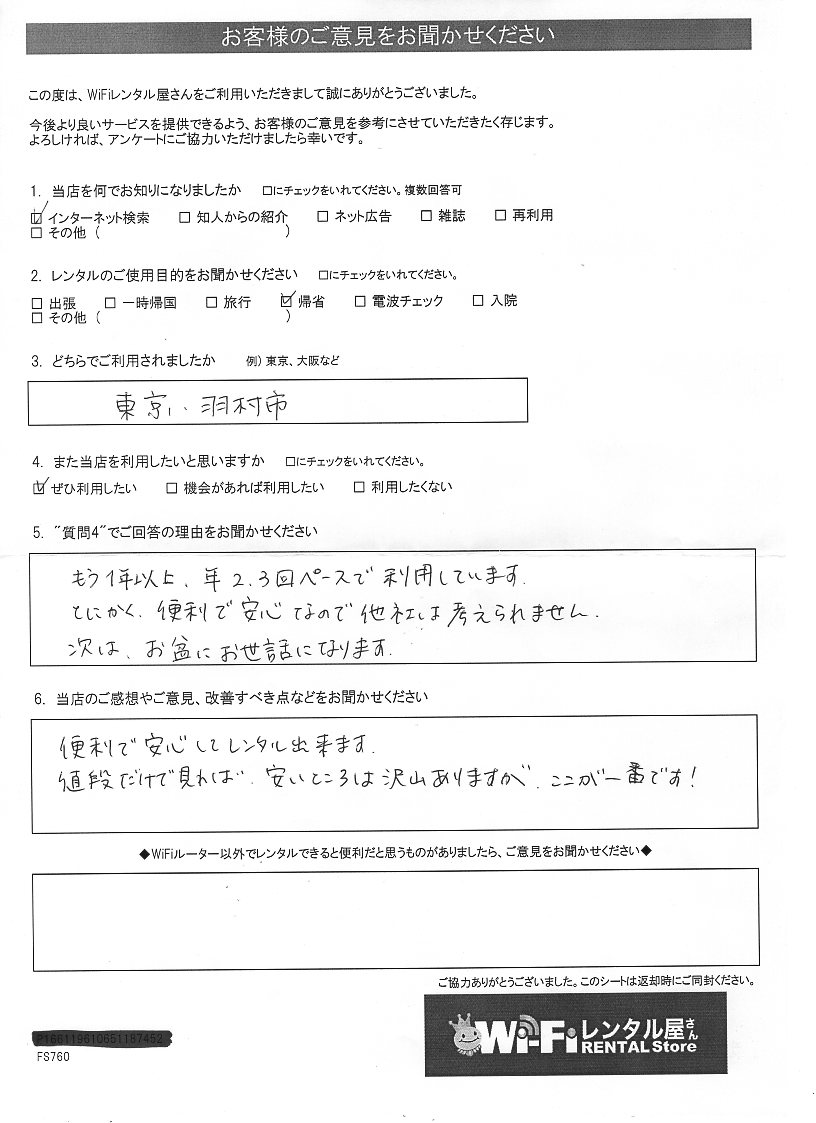 お客様のご意見をお聞かせください
この度は、WiFiレンタル屋さんをご利用いただきまして誠にありがとうございました。
今後より良いサービスを提供できるよう、お客様のご意見を参考にさせていただきたく存じます。
よろしければ、アンケートにご協力いただけましたら幸いです。
1. 当店を何でお知りになりましたか □にチェックをいれてください。複数回答可
☑ インターネット検索 □ 知人からの紹介 □ ネット広告 □ 雑誌 □ 再利用
□ その他 ( )
2. レンタルのご使用目的をお聞かせください □にチェックをいれてください。
□ 出張 □ 一時帰国 □ 旅行 ☑ 帰省 □ 電波チェック □ 入院
□ その他 ( )
3. どちらでご利用されましたか 例) 東京、大阪など
東京、羽村市
4. また当店を利用したいと思いますか □にチェックをいれてください。
☑ ぜひ利用したい □ 機会があれば利用したい □ 利用したくない
5. "質問4"でご回答の理由をお聞かせください
もう1年以上、年2.3回ペースで利用しています。
とにかく、便利で安心なので他社は考えられません。
次は、お盆にお世話になります。
6. 当店のご感想やご意見、改善すべき点などをお聞かせください
便利で安心してレンタル出来ます。
値段だけで見れば、安いところは沢山ありますが、ここが一番です!
◆WiFiルーター以外でレンタルできると便利だと思うものがありましたら、ご意見をお聞かせください◆
ご協力ありがとうございました。このシートは返却時にご同封ください。
Wi-Fiレンタル屋さん
RENTAL Store
FS760